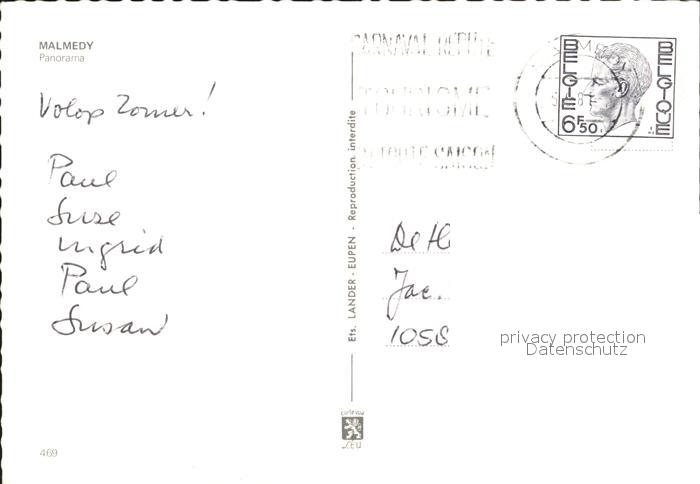 MALMEDY
Panorama
Volop Zomer!
Paul
Suse
Ingrid
Paul
Susan
469
Ets. LANDER - EUPEN - Reproduction interdite
CARNAVAL REPUTE
TOURISME
TOUTE SAISON
BELGIE
BELGIQUE
6F50
De H
Jac.
1058
privacy protection
Datenschutz